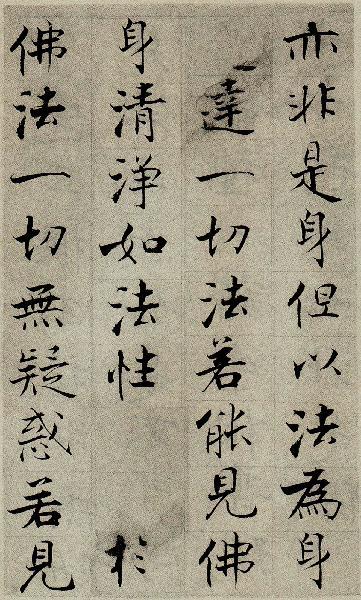 亦非是身但以法為身
達一切法若能見佛
身清淨如法性 於
佛法一切無疑惑若見